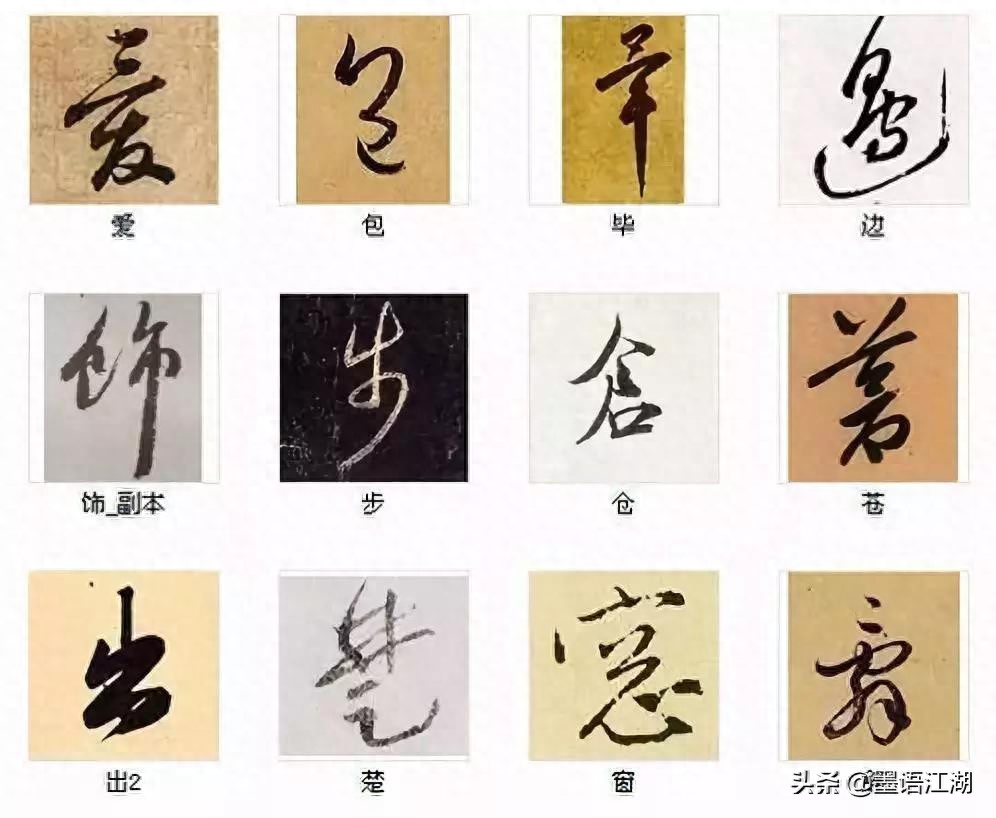 爱 包 毕 边
饰_副本 步 仓 苍
出2 楚 窗
头条 @墨语江湖